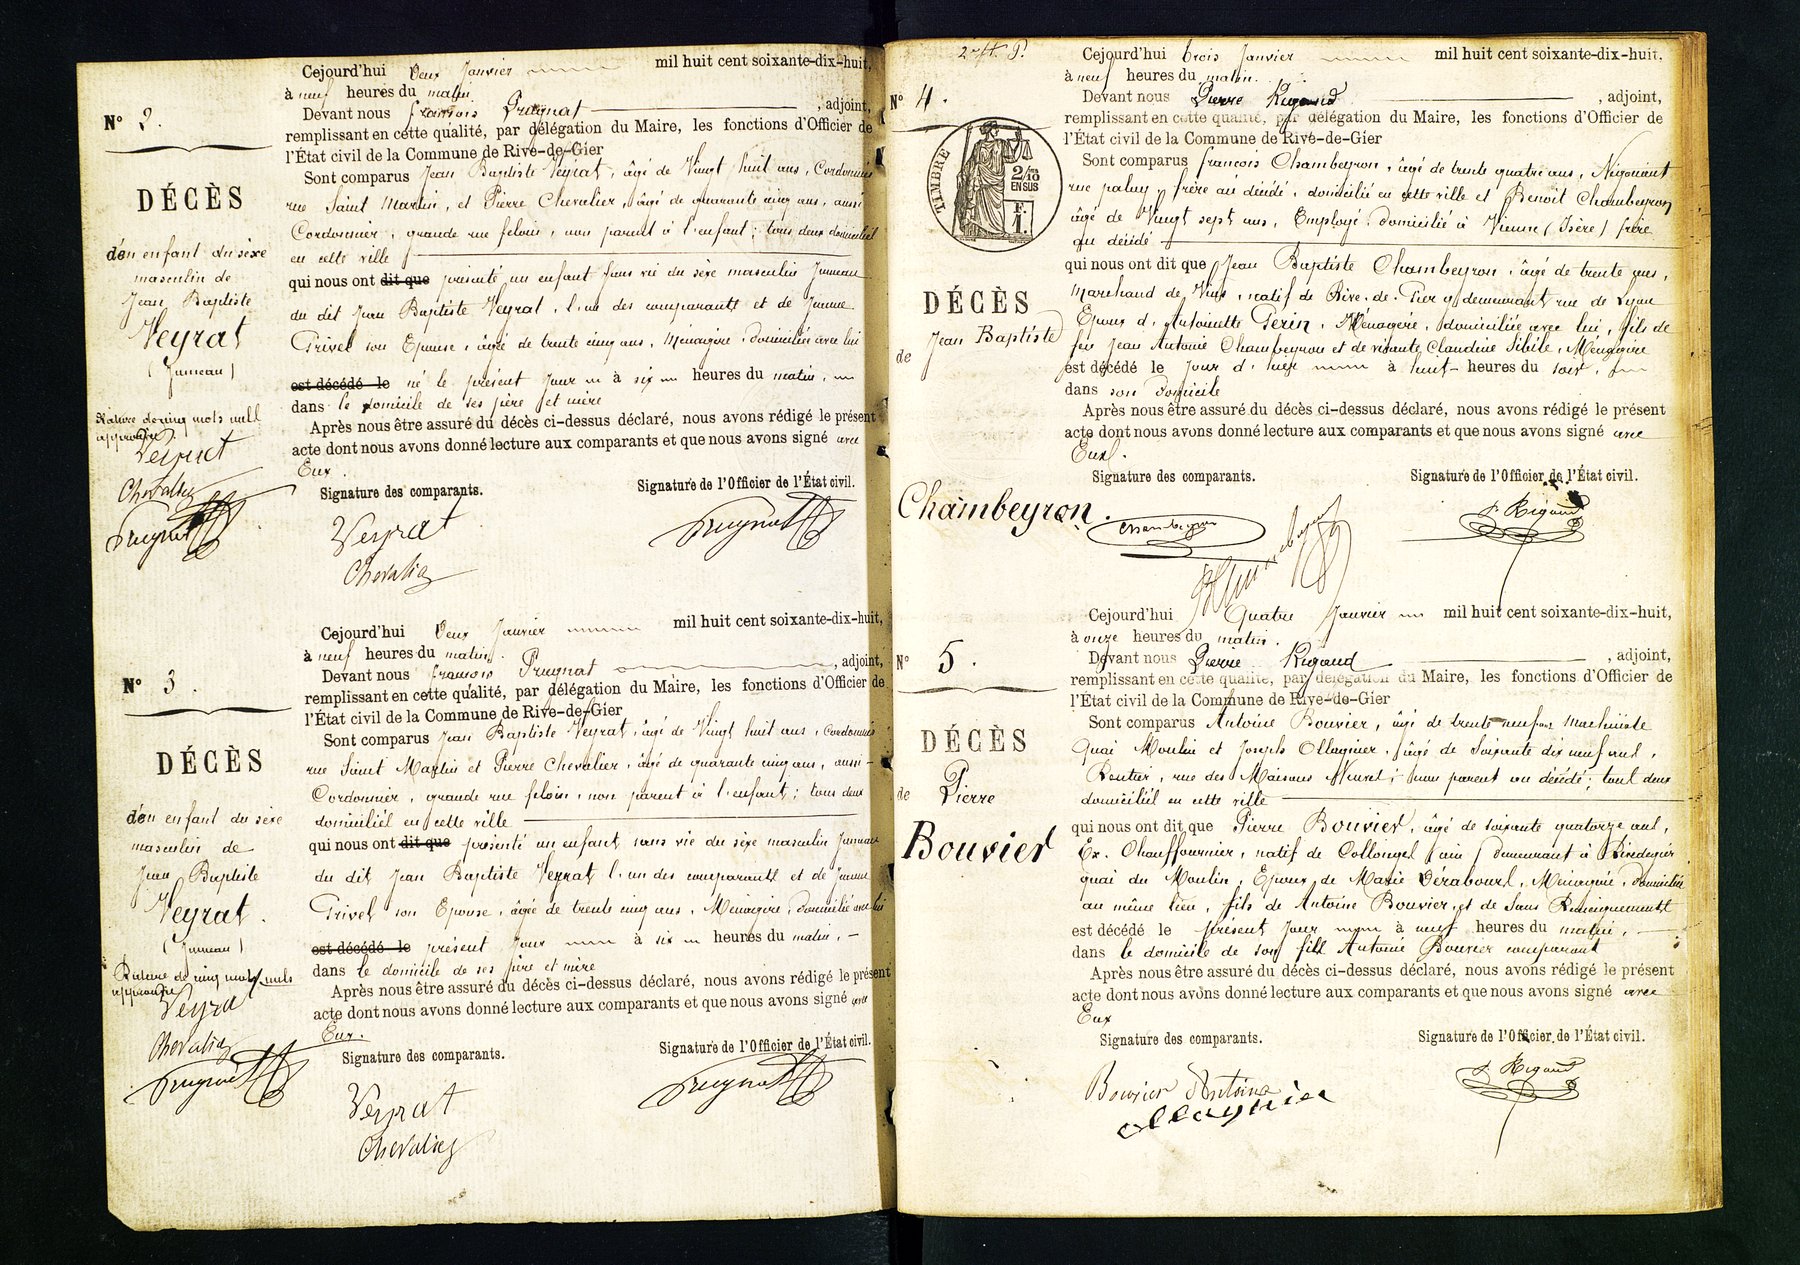 Cejourd'hui Deux Janvier mil huit cent soixante-dix-huit,
à neuf heures du matin
Devant nous françois Prugnat , adjoint,
remplissant en cette qualité, par délégation du Maire, les fonctions d'Officier de
l'État civil de la Commune de Rive-de-Gier
Sont comparus Jean Baptiste Veyrat, âgé de Vingt huit ans, Cordonnier
rue Saint Martin, et Pierre Chevalier, âgé de quarante cinq ans, aussi
Cordonnier, grande rue feloin, non parent à l'enfant; tous deux domiciliés
en cette ville
qui nous ont dit que présenté un enfant sans vie du sexe masculin Jumeau
du dit Jean Baptiste Veyrat, l'un des comparants et de Jeanne
Privet son Epouse, âgée de trente cinq ans, Ménagère, domiciliée avec lui
est décédé le né le présent Jour à six heures du matin,
dans le domicile de ses père et mère
Après nous être assuré du décès ci-dessus déclaré, nous avons rédigé le présent
acte dont nous avons donné lecture aux comparants et que nous avons signé avec
Eux.
Signature des comparants. Signature de l'Officier de l'État civil.
Veyrat
Chevalier
Prugnat
N° 2.
DÉCÈS
d'un enfant du sexe
masculin de
Jean Baptiste
Veyrat
(Jumeau)
Rature de cinq mots nuls
approuvée
Veyrat
Chevalier
Prugnat
Cejourd'hui Deux Janvier mil huit cent soixante-dix-huit,
à neuf heures du matin.
Devant nous françois Prugnat , adjoint,
remplissant en cette qualité, par délégation du Maire, les fonctions d'Officier de
l'État civil de la Commune de Rive-de-Gier
Sont comparus Jean Baptiste Veyrat, âgé de Vingt huit ans, Cordonnier
rue Saint Martin et Pierre Chevalier, âgé de quarante cinq ans, aussi
Cordonnier, grande rue feloin, non parent à l'enfant; tous deux
domiciliés en cette ville
qui nous ont dit que présenté un enfant sans vie du sexe masculin Jumeau
du dit Jean Baptiste Veyrat l'un des comparants et de Jeanne
Privet son Epouse, âgée de trente cinq ans, Ménagère, domiciliée avec lui
est décédé le présent Jour à six heures du matin,
dans le domicile de ses père et mère
Après nous être assuré du décès ci-dessus déclaré, nous avons rédigé le présent
acte dont nous avons donné lecture aux comparants et que nous avons signé avec
Eux.
Signature des comparants. Signature de l'Officier de l'État civil.
Veyrat
Chevalier
Prugnat
N° 3.
DÉCÈS
d'un enfant du sexe
masculin de
Jean Baptiste
Veyrat.
(Jumeau)
Rature de cinq mots nuls
approuvée
Veyrat
Chevalier
Prugnat
Cejourd'hui trois Janvier mil huit cent soixante-dix-huit,
à neuf heures du matin.
Devant nous Pierre Rigaud , adjoint,
remplissant en cette qualité, par délégation du Maire, les fonctions d'Officier de
l'État civil de la Commune de Rive-de-Gier
Sont comparus françois Chambeyron, âgé de trente quatre ans, Négociant
rue paluy, frère au décédé, domicilié en cette ville et Benoît Chambeyron
âgé de Vingt sept ans, Employé, domicilié à Vienne (Isère) frère
au décédé
qui nous ont dit que Jean Baptiste Chambeyron, âgé de trente ans,
Marchand de Vins, natif de Rive-de-Gier y demeurant rue de Lyon
Epoux d'Antoinette Périn, Ménagère, domiciliée avec lui, fils de
feu Jean Antoine Chambeyron et de vivante Claudine Sibile, Ménagère
est décédé le Jour d'hier à huit heures du soir,
dans son Domicile
Après nous être assuré du décès ci-dessus déclaré, nous avons rédigé le présent
acte dont nous avons donné lecture aux comparants et que nous avons signé avec
Eux.
Signature des comparants. Signature de l'Officier de l'État civil.
Chambeyron
Chambeyron
P. Rigaud
N° 4.
TIMBRE
2/10
EN SUS
F.
1.
DÉCÈS
de Jean Baptiste
Chambeyron.
Cejourd'hui Quatre Janvier mil huit cent soixante-dix-huit,
à onze heures du matin.
Devant nous Pierre Rigaud , adjoint,
remplissant en cette qualité, par délégation du Maire, les fonctions d'Officier de
l'État civil de la Commune de Rive-de-Gier
Sont comparus Antoine Bouvier, âgé de trente-neuf ans Machiniste
Quai Moulin et Joseph Ollagnier, âgé de soixante dix neuf ans,
Rentier, rue des Maisons Neuves, non parent au décédé; tous deux
domiciliés en cette ville
qui nous ont dit que Pierre Bouvier, âgé de soixante quatorze ans,
Ex. Chauffournier, natif de Collonges (ain) demeurant à Rivedegier
quai du Moulin, Epoux de Marie Dérabours, Ménagère, domiciliée
au même lieu, fils de Antoine Bouvier, et de Sans Renseignements
est décédé le présent Jour à neuf heures du matin,
dans le domicile de son fils Antoine Bouvier comparant
Après nous être assuré du décès ci-dessus déclaré, nous avons rédigé le présent
acte dont nous avons donné lecture aux comparants et que nous avons signé avec
Eux
Signature des comparants. Signature de l'Officier de l'État civil.
Bouvier Antoine
Ollagnier
P. Rigaud
N° 5.
DÉCÈS
de Pierre
Bouvier